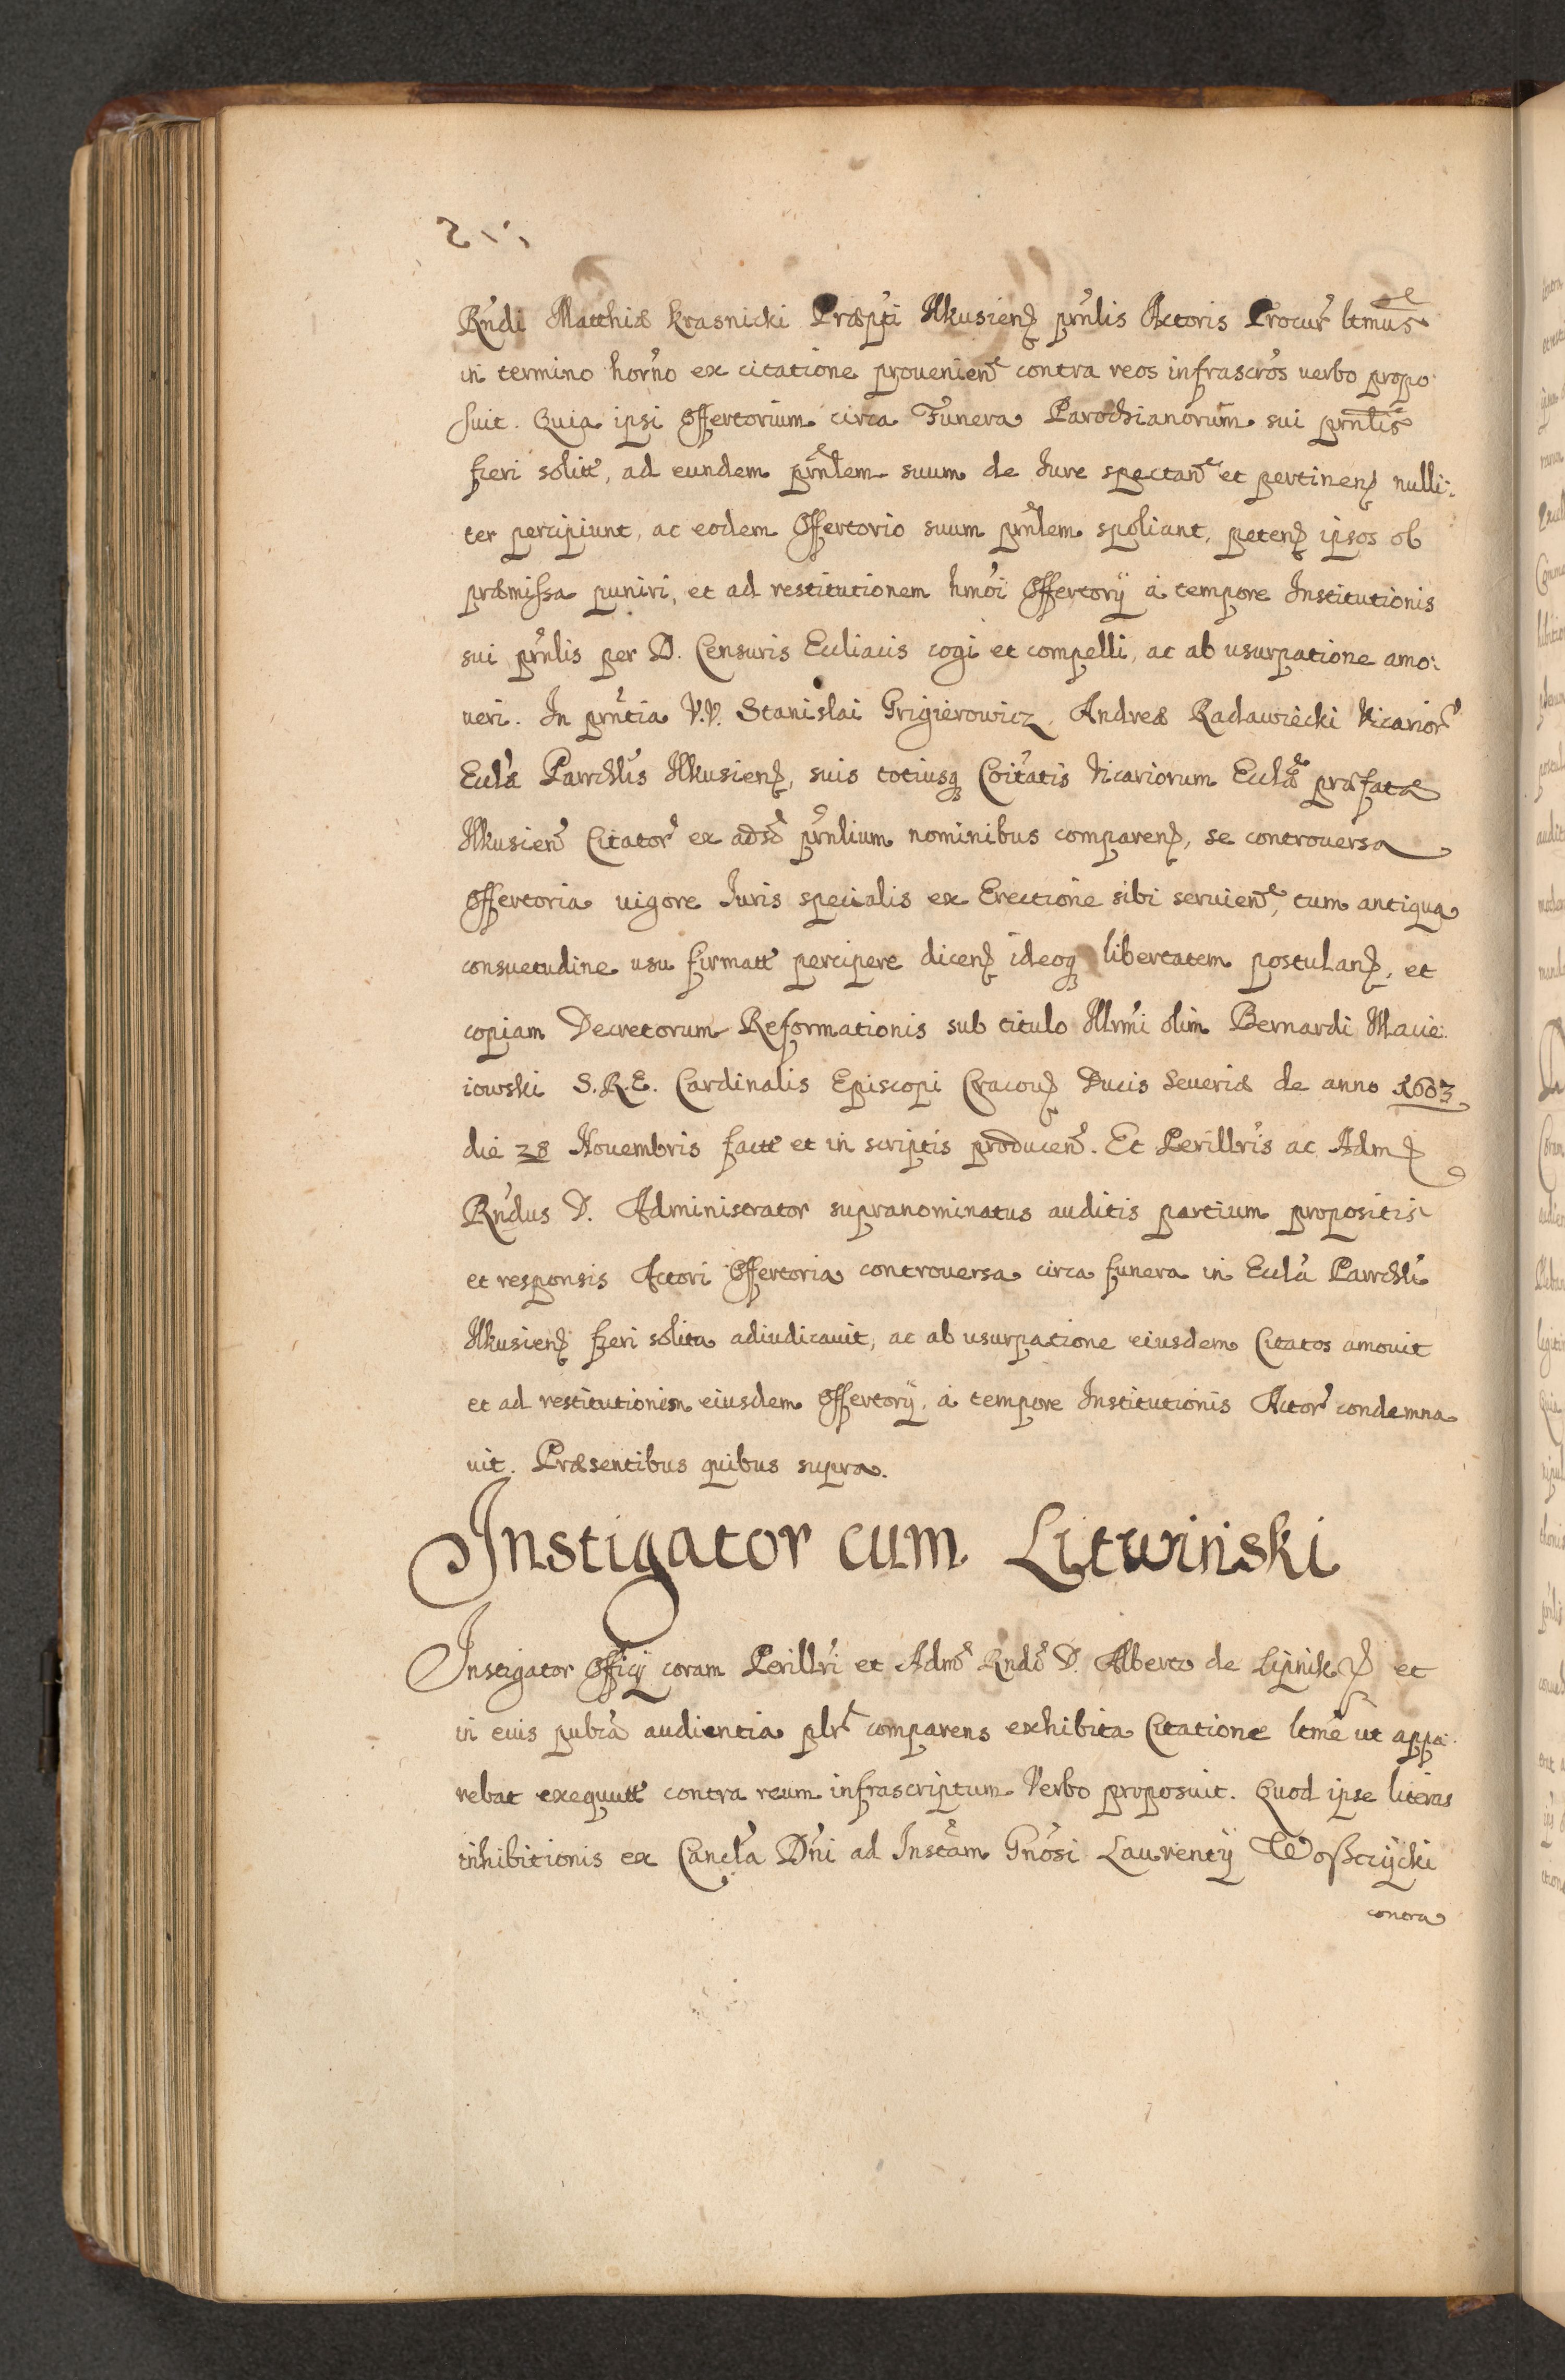 Rndi Matthiæ Krasnicki Præpti Ilkusien prnlis Actoris Procur ltmus
in termino horno ex citatione prouenien contra reos infrascros uerbo propo
suit. Quia ipsi Offertorium circa Funera Parochianorum sui prnlis
fieri solitt, ad eundem prnlem suum de Iure spectan et pertinen nulli:
ter percipiunt, ac eodem Offertorio suum prnlem spoliant, peten ipsos ob
præmissa puniri, et ad restitutionem hmoi Offertorij à tempore Institutionis
sui prnlis per D. Censuris Eccliacis cogi et compelli, ac ab usurpatione amo:
ueri. In prntia V.V. Stanislai Grigierowicz Andreæ Radawiecki Vicarior
Eccla Parrchlis Ilkusien, suis totiusq Coitatis Vicariorum Ecclæ præfatæ
Ilkusien Citator ex adso prnlium nominibus comparen, se controuersa
Offertoria uigore Iuris specialis ex Erectione sibi seruien, tum antiqua
consuetudine usu firmatt percipere dicen ideoq libertatem postulan, et
copiam Decretorum Reformationis sub titulo Illrmi olim Bernardi Macie:
iowski S.R.E. Cardinalis Episcopi Cracou Ducis Seueriæ de anno 1603
die 28 Nouembris factt et in scriptis producen. Et Perillris ac Adm
Rndus D. Administrator supranominatus auditis partium propositis
et responsis Actori Offertoria controuersa circa funera in Eccla Parrchli
Ilkusien fieri solita adiudicauit, ac ab usurpatione eiusdem Citatos amouit
et ad restitutionem eiusdem Offertorij à tempore Institutionis Actor condemna
uit. Præsentibus quibus supra.
Instigator cum Litwinski
Instigator Officij coram Perillri et Admo Rndo D. Alberto de Lipnik et
in euis publca audientia plr comparens exhibita Citatione ltme ut appa:
rebat exequutt contra reum infrascriptum Verbo proposuit. Quod ipse literas
inhibitionis ex Cancla Dni ad Instam Gnosi Laurentij Woßczijcki
contra